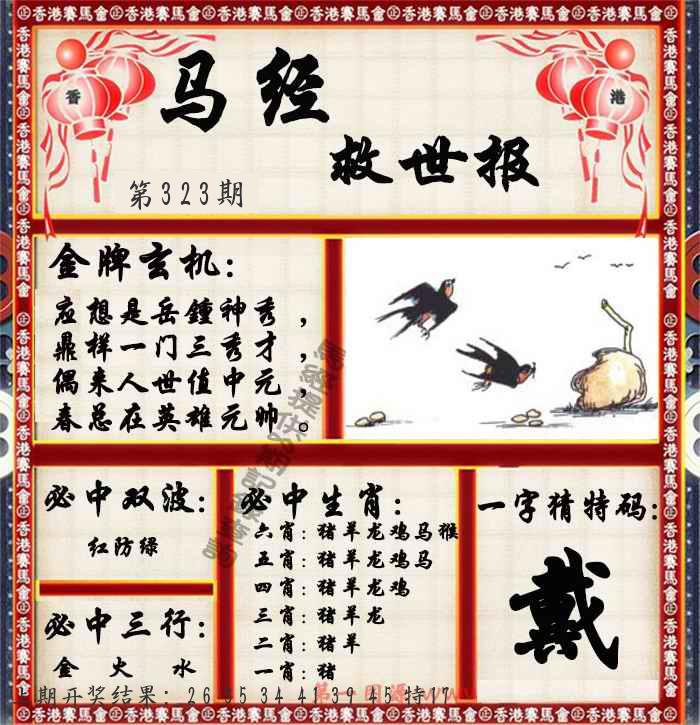 香港賽馬會 香港賽馬會 香港賽馬會 香港賽馬會 香港賽馬會 香港賽馬會
香 港
马经
救世报
第323期
金牌玄机：
应想是岳鐘神秀，
鼎样一门三秀才，
偶来人世值中元，
春总在英雄元帅。
必中双波：
红防绿
必中三行：
金 火 水
必中生肖：
六肖：猪羊龙鸡马猴
五肖：猪羊龙鸡马
四肖：猪羊龙鸡
三肖：猪羊龙
二肖：猪羊
一肖：猪
一字猜特码：
戴
期开奖结果：26 35 34 41 39 45 特17